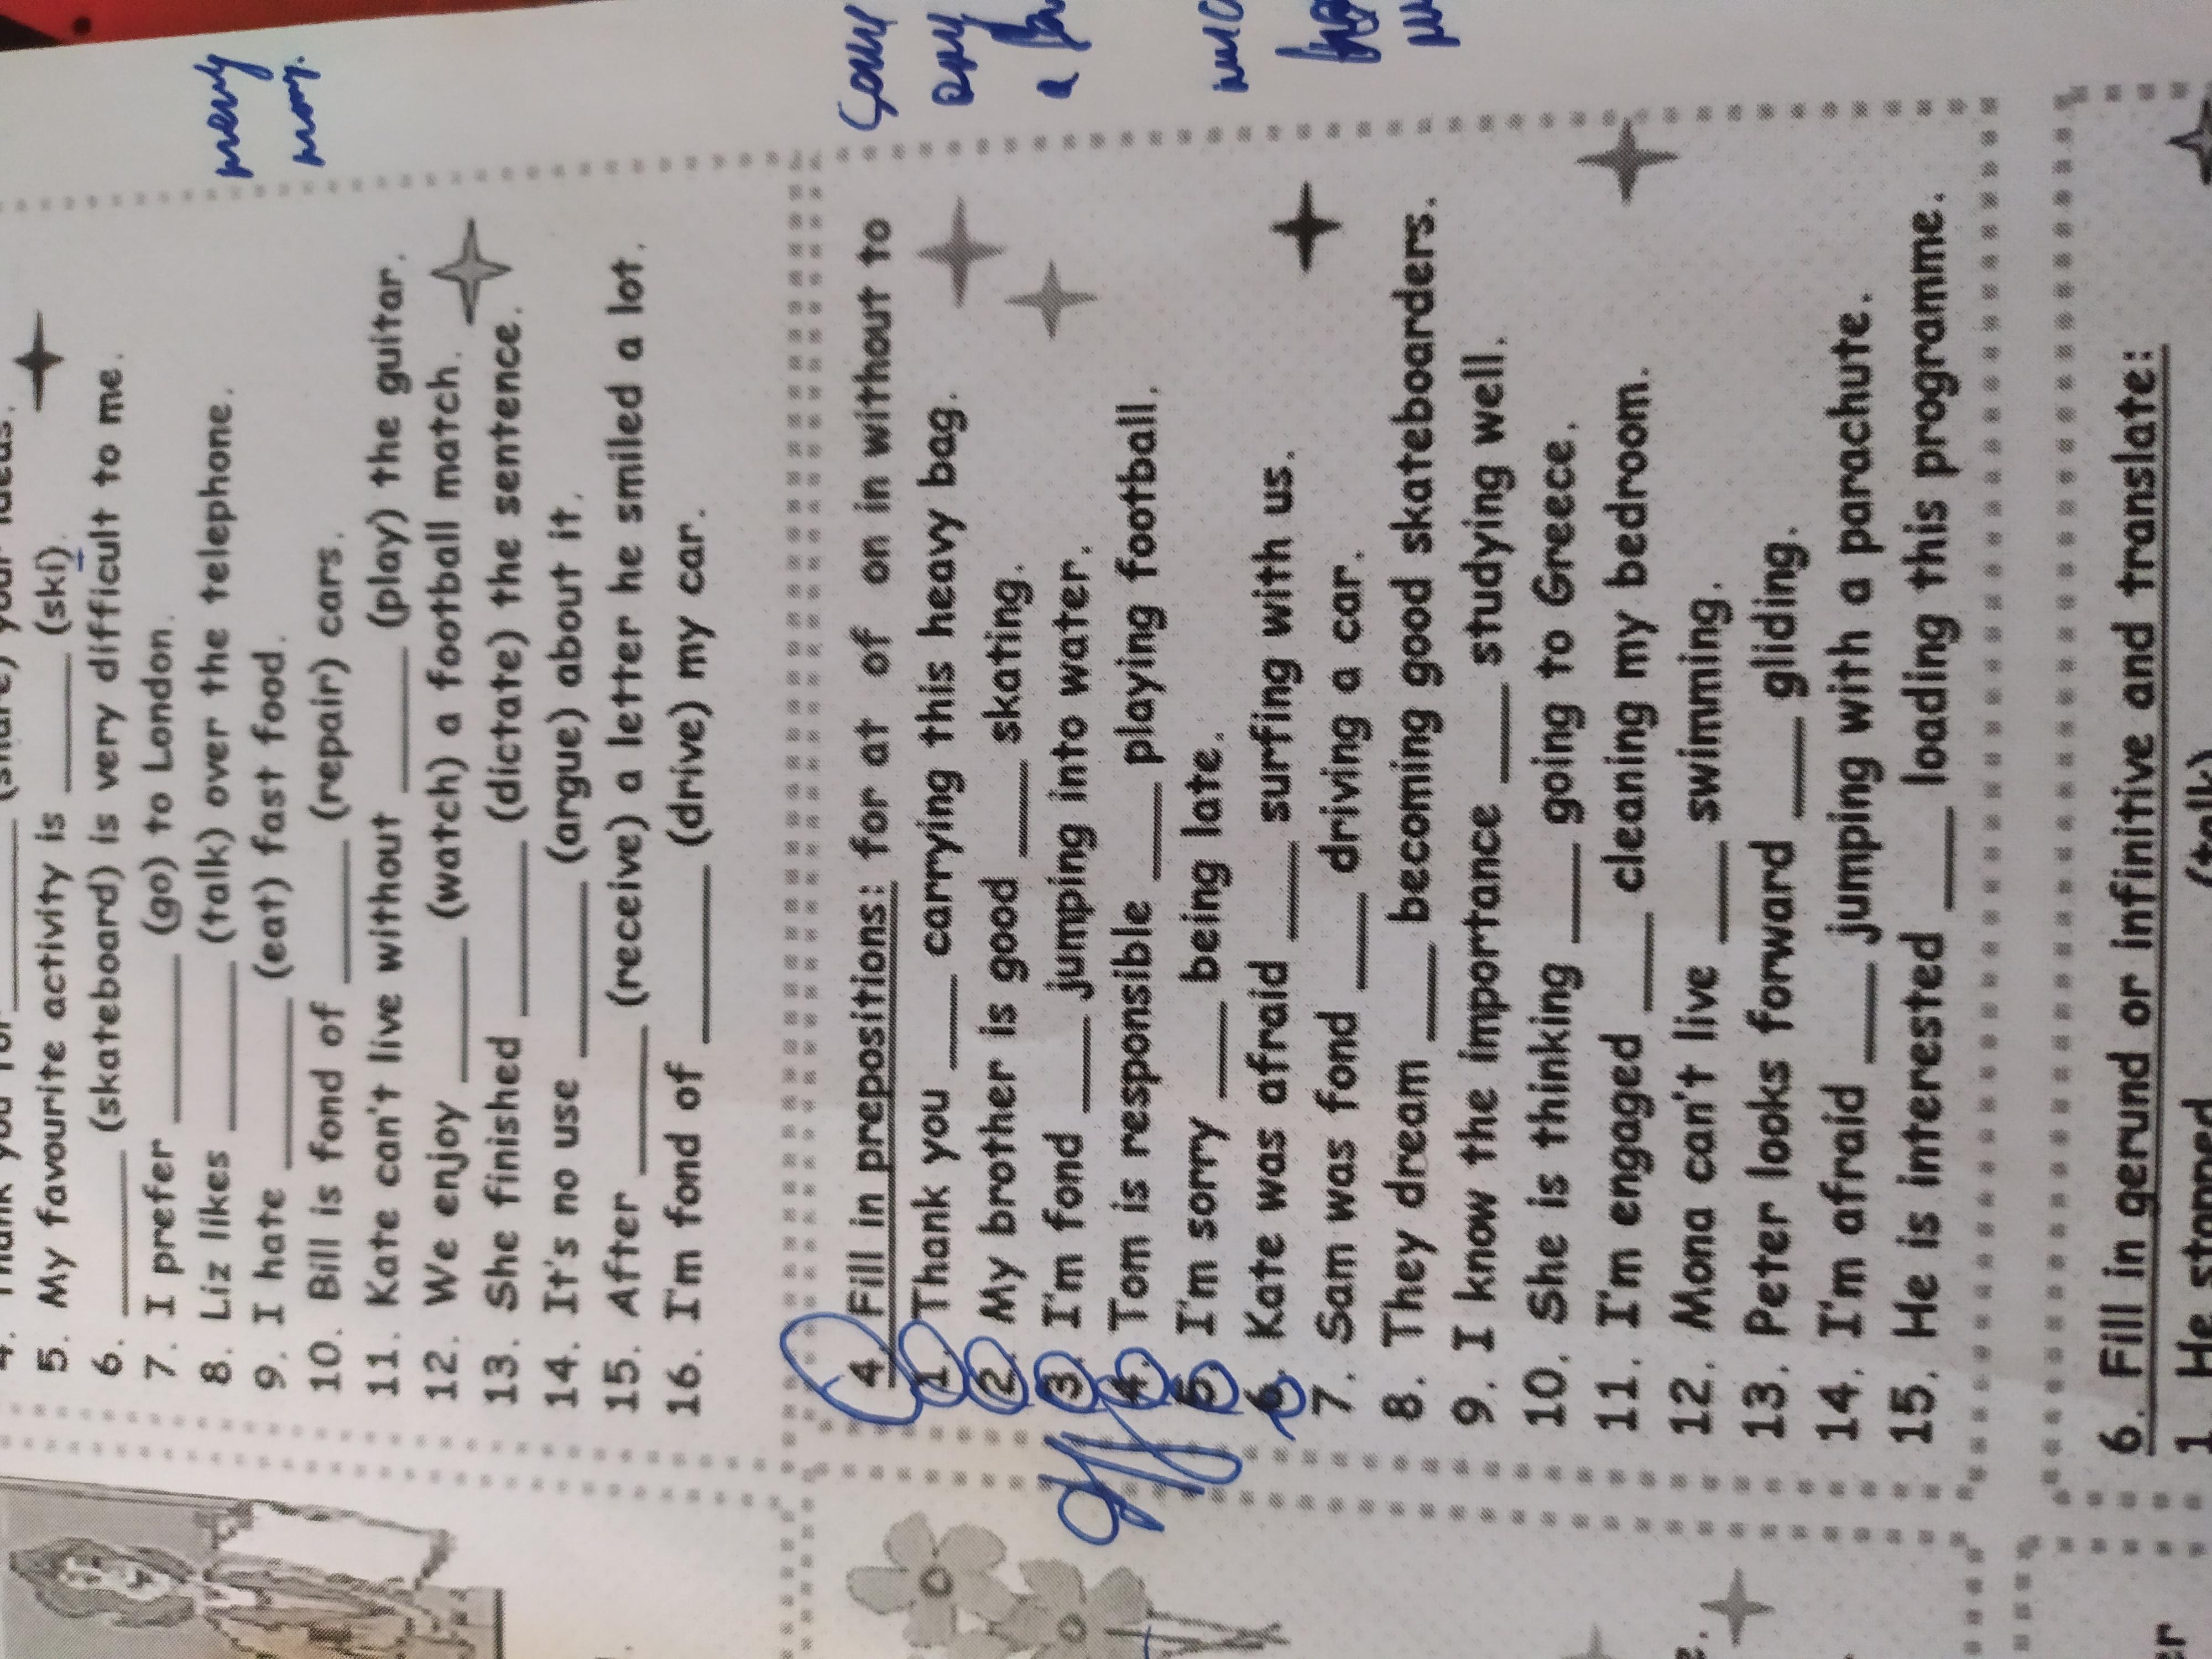 5. My favourite activity is ______ (ski).
6. ______ (skateboard) is very difficult to me.
7. I prefer ______ (go) to London.
8. Liz likes ______ (talk) over the telephone.
9. I hate ______ (eat) fast food.
10. Bill is fond of ______ (repair) cars.
11. Kate can't live without ______ (play) the guitar.
12. We enjoy ______ (watch) a football match.
13. She finished ______ (dictate) the sentence.
14. It's no use ______ (argue) about it.
15. After ______ (receive) a letter he smiled a lot.
16. I'm fond of ______ (drive) my car.
4. Fill in prepositions: for at of on in without to
1. Thank you ____ carrying this heavy bag.
2. My brother is good ____ skating.
3. I'm fond ____ jumping into water.
4. Tom is responsible ____ playing football.
5. I'm sorry ____ being late.
6. Kate was afraid ____ surfing with us.
7. Sam was fond ____ driving a car.
8. They dream ____ becoming good skateboarders.
9. I know the importance ____ studying well.
10. She is thinking ____ going to Greece.
11. I'm engaged ____ cleaning my bedroom.
12. Mona can't live ____ swimming.
13. Peter looks forward ____ gliding.
14. I'm afraid ____ jumping with a parachute.
15. He is interested ____ loading this programme.
6. Fill in gerund or infinitive and translate:
1. He stopped (talk)